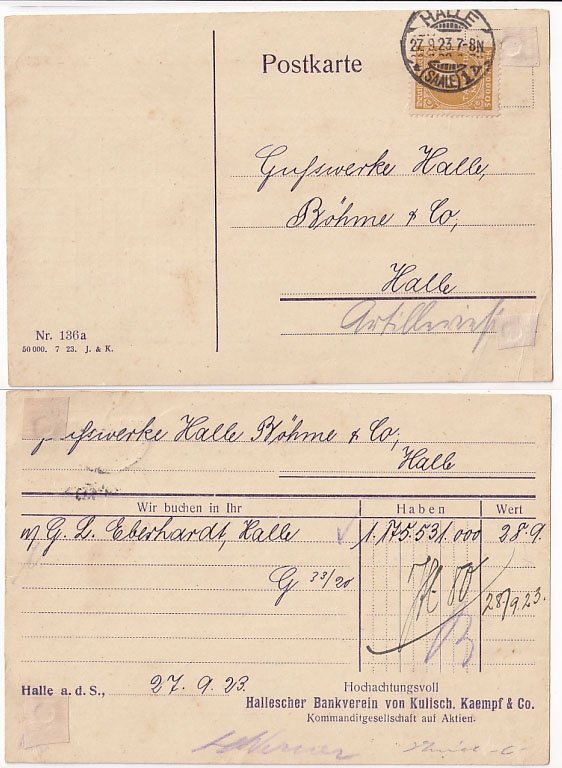 HALLE
27.9.23.7-8N
(SAALE)1
Postkarte
Gußwerke Halle,
Böhme & Co,
Halle
Nr. 136a
50 000. 7 23. J. & K.
Gußwerke Halle Böhme & Co,
Halle
Wir buchen in Ihr Haben Wert
G. L. Eberhardt, Halle 1.175.531.000 28.9.
G 33/20
28/9 23.
Halle a. d. S., 27. 9. 23.
Hochachtungsvoll
Hallescher Bankverein von Kulisch. Kaempf & Co.
Kommanditgesellschaft auf Aktien.